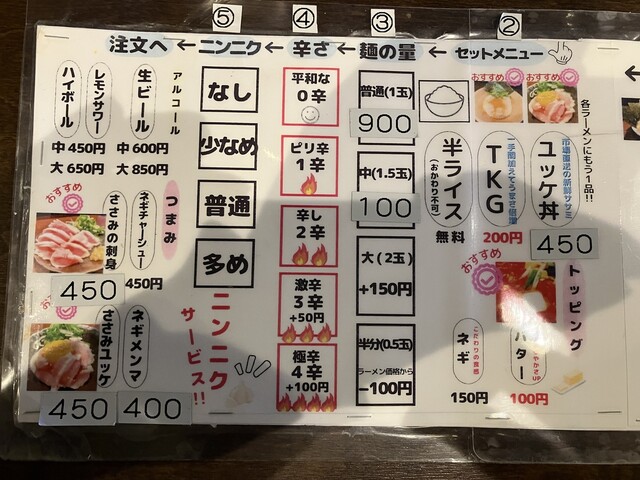 ⑤
④
③
②
注文へ ← ニンニク ← 辛さ ← 麺の量 ← セットメニュー
各ラーメンにもう1品!!
おすすめ
おすすめ
ユッケ丼
市場直送の新鮮ササミ
450
TKG
200円
半ライス
(おかわり不可)
無料
トッピング
おすすめ
バター
100円
ネギ
こだわりの食感
150円
普通(1玉)
900
中(1.5玉)
100
大(2玉)
+150円
半分(0.5玉)
ラーメン価格から
−100円
平和な
0辛
ピリ辛
1辛
辛し
2辛
激辛
3辛
+50円
極辛
4辛
+100円
なし
少なめ
普通
多め
ニンニク
サービス!!
アルコール
生ビール
中600円
大850円
レモンサワー
ハイボール
中450円
大650円
つまみ
ネギチャーシュー
450円
おすすめ
ささみの刺身
450
ネギメンマ
400
ささみユッケ
450